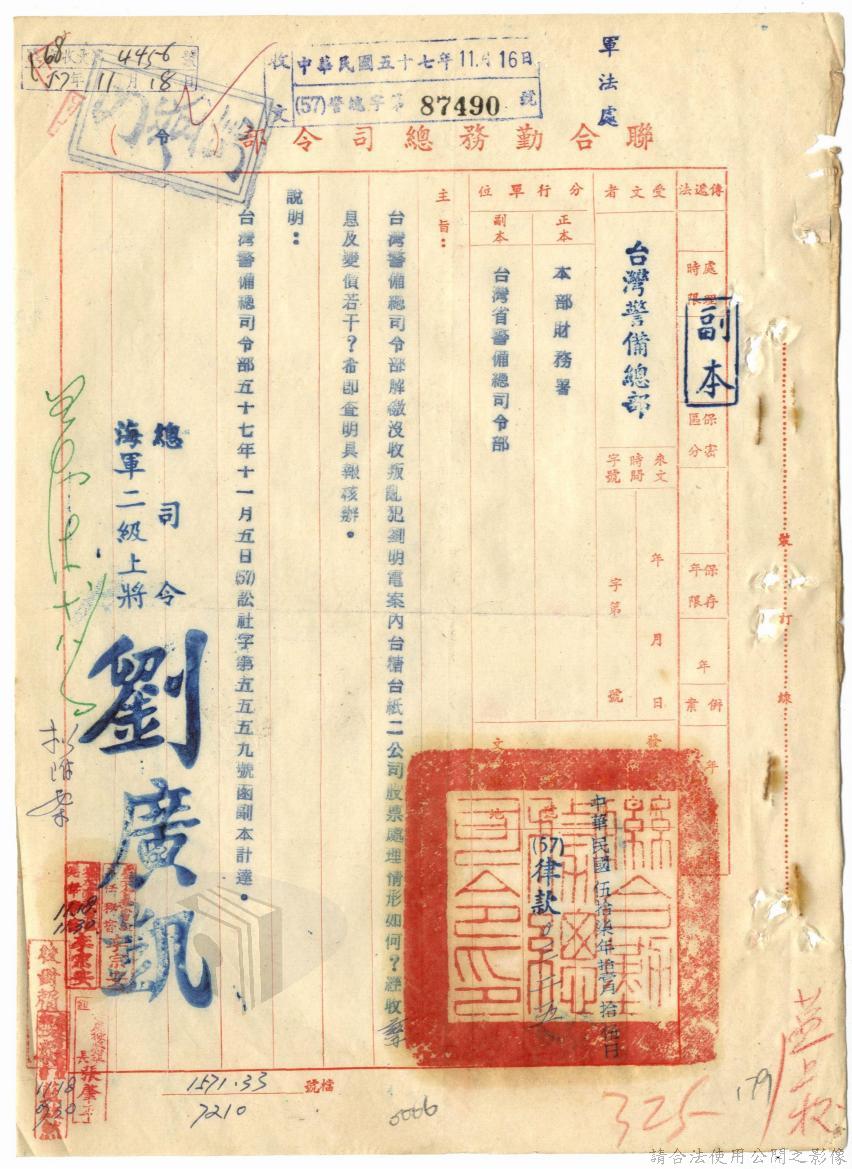 軍法處
收文
中華民國五十七年11月16日
(57)警總字第87490號
4456號
57年11月18日
聯合勤務總司令部(令)
傳遞法
處理時限
保密區分
保存年限
年
併案
受文者
台灣警備總部
副本
來文
時間
字號
年月日
字第號
分行單位
正本
本部財務署
副本
台灣省警備總司令部
發文
中華民國伍拾柒年拾壹月拾伍日
(57)律款
主旨：
台灣警備總司令部解繳沒收叛亂犯劉明電案內台糖台紙二公司股票處理情形如何？經收孳
息及變價若干？希即查明具報核辦。
說明：
台灣警備總司令部五十七年十一月五日(57)訟社字第五五五九號函副本計達。
總司令
海軍二級上將
劉廣凱
擬附案
裝訂線
檔號
1571.33
7210
0006
325
179
請合法使用公開之影像